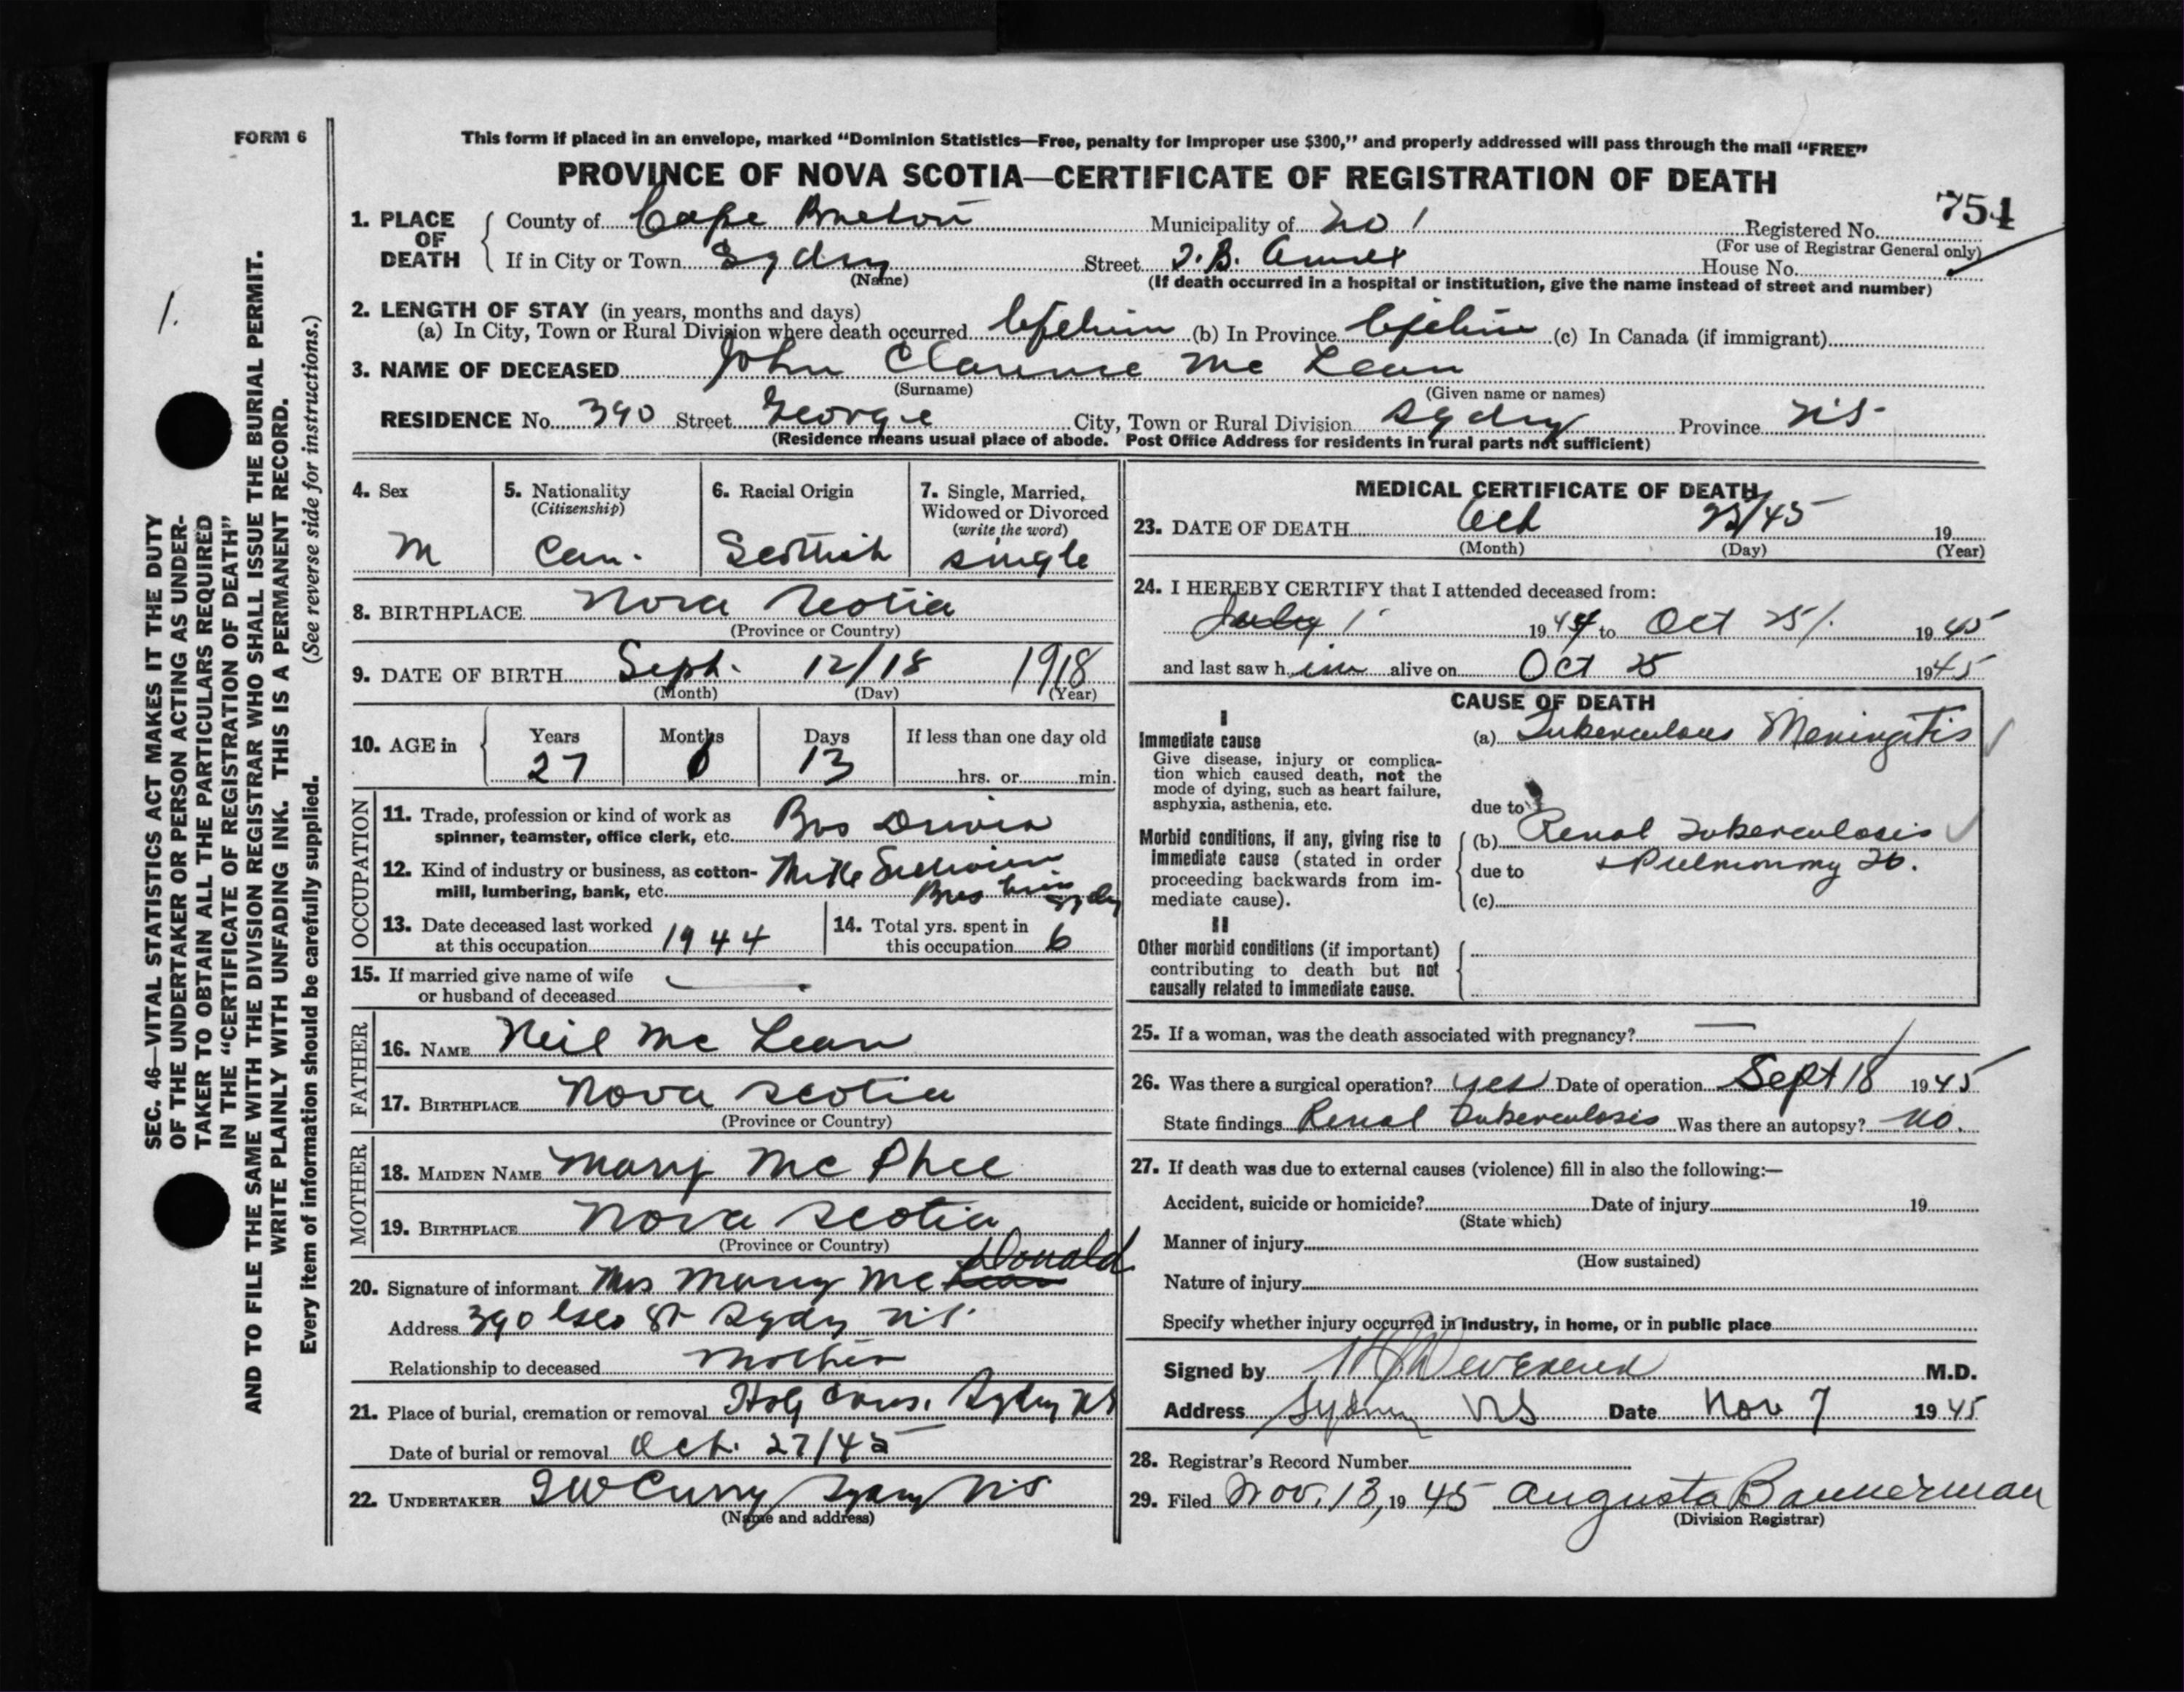 FORM 6
This form if placed in an envelope, marked "Dominion Statistics—Free, penalty for improper use $300," and properly addressed will pass through the mail "FREE"
PROVINCE OF NOVA SCOTIA—CERTIFICATE OF REGISTRATION OF DEATH
754
1. PLACE OF DEATH
County of Cape Breton Municipality of No 1 Registered No.
(For use of Registrar General only)
If in City or Town Sydny Street T.B. Annex House No.
(Name) (If death occurred in a hospital or institution, give the name instead of street and number)
2. LENGTH OF STAY (in years, months and days)
(a) In City, Town or Rural Division where death occurred Lifetime (b) In Province Lifetime (c) In Canada (if immigrant)
3. NAME OF DECEASED John Clarence Mc Lean
(Surname) (Given name or names)
RESIDENCE No. 390 Street George City, Town or Rural Division Sydny Province N.S.
(Residence means usual place of abode. Post Office Address for residents in rural parts not sufficient)
4. Sex
M
5. Nationality
(Citizenship)
Can.
6. Racial Origin
Scottish
7. Single, Married, Widowed or Divorced
(write the word)
single
8. BIRTHPLACE Nova Scotia
(Province or Country)
9. DATE OF BIRTH Sept. 12/18 1918
(Month) (Day) (Year)
10. AGE in Years Months Days If less than one day old
27 13 hrs. or min.
OCCUPATION
11. Trade, profession or kind of work as spinner, teamster, office clerk, etc. Bus Driver
12. Kind of industry or business, as cotton-mill, lumbering, bank, etc. Mike Sullivan
Bus Sydny
13. Date deceased last worked at this occupation 1944
14. Total yrs. spent in this occupation 6
15. If married give name of wife or husband of deceased —
FATHER
16. NAME Neil Mc Lean
17. BIRTHPLACE Nova Scotia
(Province or Country)
MOTHER
18. MAIDEN NAME Mary Mc Phee
19. BIRTHPLACE Nova Scotia
(Province or Country)
20. Signature of informant Mrs Mary Mc Lean Donald
Address 390 Geo St Sydny N.S.
Relationship to deceased Mother
21. Place of burial, cremation or removal Holy Cross. Sydny NS
Date of burial or removal Oct. 27/45
22. UNDERTAKER Curry Sydny N.S
(Name and address)
MEDICAL CERTIFICATE OF DEATH
23. DATE OF DEATH Oct 25/45 19
(Month) (Day) (Year)
24. I HEREBY CERTIFY that I attended deceased from:
July 1 1944 to Oct 25/. 1945
and last saw him alive on Oct 25 1945
CAUSE OF DEATH
I
Immediate cause
Give disease, injury or complication which caused death, not the mode of dying, such as heart failure, asphyxia, asthenia, etc.
(a) Tuberculous Meningitis
due to
Morbid conditions, if any, giving rise to immediate cause (stated in order proceeding backwards from immediate cause).
(b) Renal Tuberculosis
due to + Pulmonary Tb.
(c)
II
Other morbid conditions (if important) contributing to death but not causally related to immediate cause.
25. If a woman, was the death associated with pregnancy? —
26. Was there a surgical operation? yes Date of operation Sept 18 1945
State findings Renal Tuberculosis Was there an autopsy? no.
27. If death was due to external causes (violence) fill in also the following:—
Accident, suicide or homicide? Date of injury 19
(State which)
Manner of injury
(How sustained)
Nature of injury
Specify whether injury occurred in industry, in home, or in public place
Signed by M.D.
Address Sydney NS Date Nov 7 1945
28. Registrar's Record Number
29. Filed Nov. 13, 1945 Augusta Bannerman
(Division Registrar)
1.
SEC. 46—VITAL STATISTICS ACT MAKES IT THE DUTY
OF THE UNDERTAKER OR PERSON ACTING AS UNDER-
TAKER TO OBTAIN ALL THE PARTICULARS REQUIRED
IN THE "CERTIFICATE OF REGISTRATION OF DEATH"
AND TO FILE THE SAME WITH THE DIVISION REGISTRAR WHO SHALL ISSUE THE BURIAL PERMIT.
WRITE PLAINLY WITH UNFADING INK. THIS IS A PERMANENT RECORD.
Every item of information should be carefully supplied. (See reverse side for instructions.)